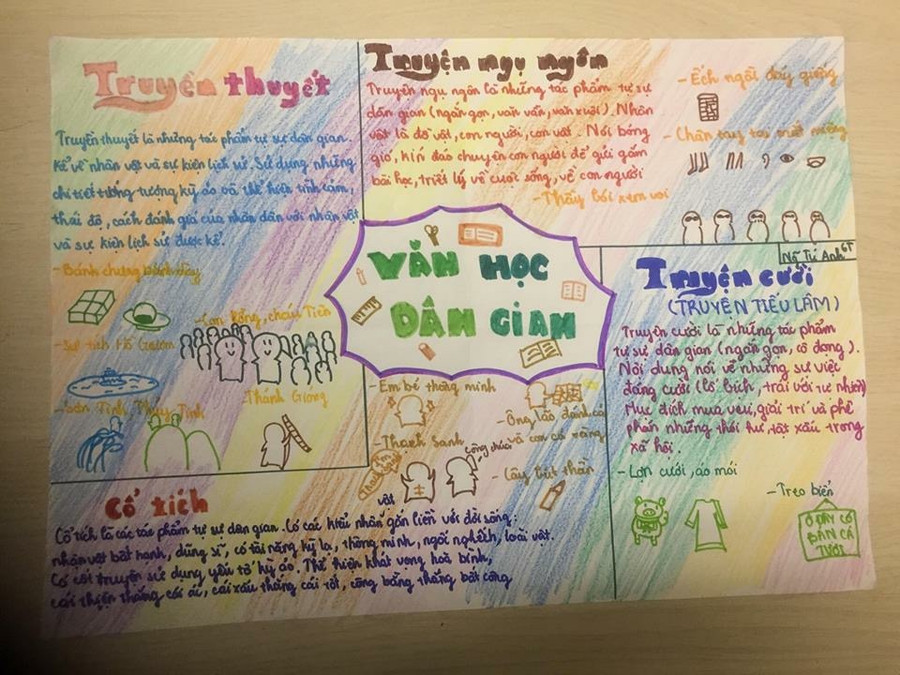 Truyền thuyết
Truyền thuyết là những tác phẩm tự sự dân gian.
Kể về nhân vật và sự kiện lịch sử. Sử dụng những
chi tiết tưởng tượng kỳ ảo và thể hiện tình cảm,
thái độ, cách đánh giá của nhân dân với nhân vật
và sự kiện lịch sử được kể.
- Bánh chưng bánh dày
- Con Rồng, cháu Tiên
- Sự tích Hồ Gươm
- Thánh Gióng
- Sơn Tinh, Thủy Tinh
Truyện ngụ ngôn
Truyện ngụ ngôn là những tác phẩm tự sự
dân gian (ngắn gọn, văn vần, văn xuôi). Nhân
vật là đồ vật, con người, con vật. Nói bóng
gió, kín đáo chuyện con người để gửi gắm
bài học, triết lý về cuộc sống, về con người
- Ếch ngồi đáy giếng
- Chân tay tai mắt miệng
- Thầy bói xem voi
VĂN HỌC
DÂN GIAN
Ngô Tú Anh 6T
Truyện cười
(TRUYỆN TIẾU LÂM)
Truyện cười là những tác phẩm
tự sự dân gian (ngắn gọn, cô đọng).
Nội dung nói về những sự việc
đáng cười (lố bịch, trái với tự nhiên)
Mục đích mua vui, giải trí và phê
phán những thói hư, tật xấu trong
xã hội.
- Lợn cưới, áo mới
- Treo biển
Ở ĐÂY CÓ
BÁN CÁ
TƯƠI
- Em bé thông minh
- Ông lão đánh cá
và con cá vàng
- Thạch Sanh
công chúa
- Cây bút thần
Cổ tích
Cổ tích là các tác phẩm tự sự dân gian. Có các kiểu nhân gắn liền với đời sống:
nhân vật bất hạnh, dũng sĩ, có tài năng kỳ lạ, thông minh, ngốc nghếch, loài vật.
Có cốt truyện sử dụng yếu tố kỳ ảo. Thể hiện khát vọng hoà bình,
cái thiện thắng cái ác, cái xấu thắng cái tốt, công bằng thắng bất công